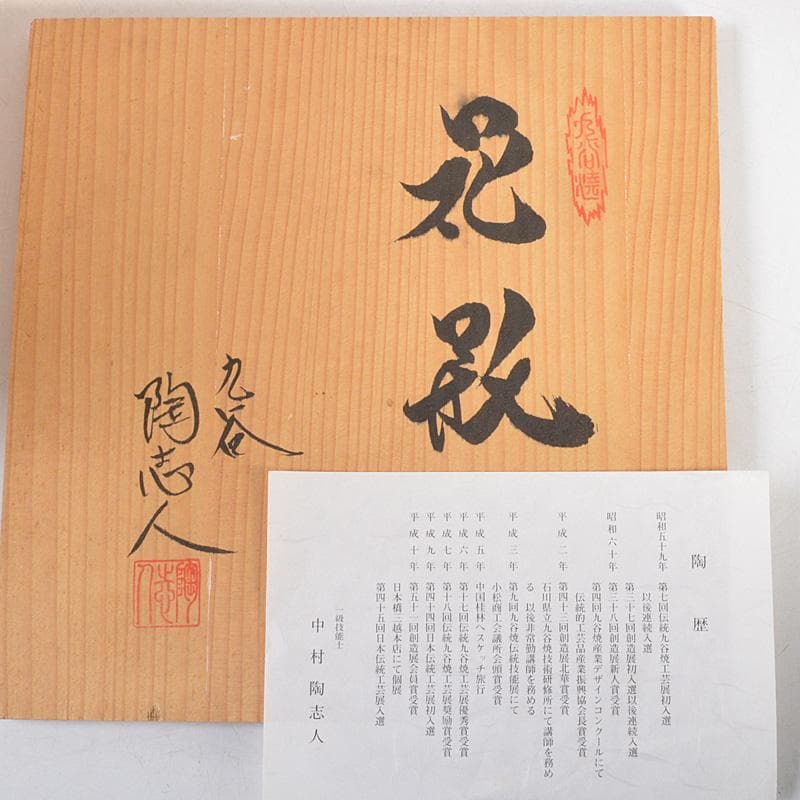 九谷焼
花瓶
九谷
陶志人
陶志人
陶歴
昭和五十九年 第七回伝統九谷焼工芸展初入選
以後連続入選
第三十七回創造展初入選以後連続入選
昭和六十年 第三十八回創造展新人賞受賞
第四回九谷焼産業デザインコンクールにて
伝統的工芸品産業振興協会長賞受賞
平成二年 第四十三回創造展北華賞受賞
石川県立九谷焼技術研修所にて講師を務め
る 以後非常勤講師を務める
平成三年 第九回九谷焼伝統技能展にて
小松商工会議所会頭賞受賞
平成五年 中国桂林へスケッチ旅行
平成六年 第十七回伝統九谷焼工芸展優秀賞受賞
平成七年 第十八回伝統九谷焼工芸展奨励賞受賞
平成九年 第四十四回日本伝統工芸展初入選
平成十年 第五十一回創造展会員賞受賞
日本橋三越本店にて個展
第四十五回日本伝統工芸展入選
一級技能士
中村陶志人